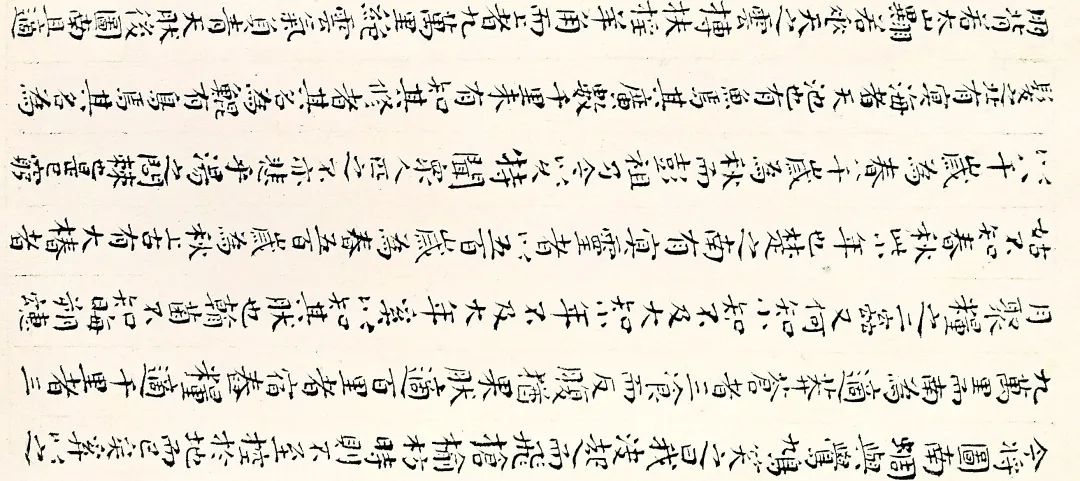 今将圖南蜩與鷽鳩笑之曰我決起而飛搶榆枋時則不至控於地而已矣奚以之
九萬里而南為適莽蒼者三飡而反腹猶果然適百里者宿舂糧適千里者三
月聚糧之二蟲又何知小知不及大知小年不及大年奚以知其然也朝菌不知晦朔蟪
姑不知春秋此小年也楚之南有冥靈者以五百歲為春五百歲為秋上古有大椿者
以八千歲為春八千歲為秋而彭祖乃今以久特聞眾人匹之不亦悲乎湯之問棘也是已窮
髮之北有冥海者天池也有魚焉其廣數千里未有知其修者其名為鯤有鳥焉其名為
鵬背若太山翼若垂天之雲摶扶搖羊角而上者九萬里絕雲氣負青天然後圖南且適